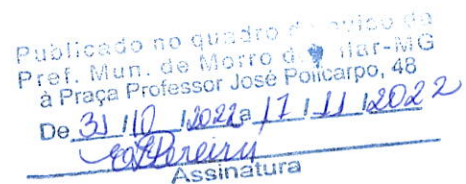 Publicado no quadro de aviso da
Pref. Mun. de Morro do Pilar-MG
à Praça Professor José Policarpo, 48
De 31 / 10 / 2022 a 17 / 11 / 2022
Pereira
Assinatura